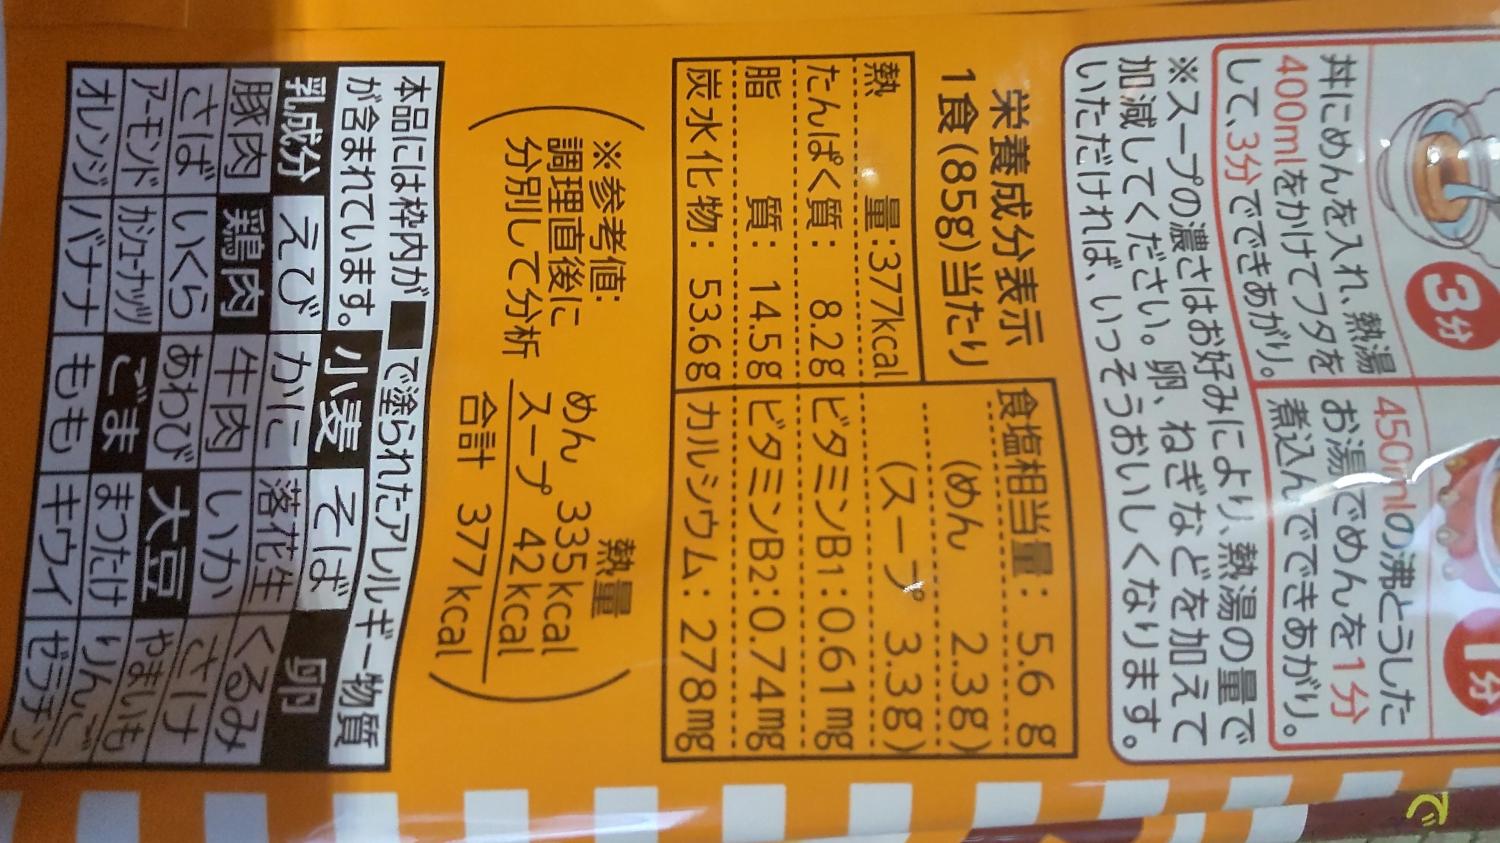 3分
丼にめんを入れ、熱湯
400mlをかけてフタを
して、3分でできあがり。
1分
450mlの沸とうした
お湯でめんを1分
煮込んでできあがり。
※スープの濃さはお好みにより、熱湯の量で
加減してください。卵、ねぎなどを加えて
いただければ、いっそうおいしくなります。
栄養成分表示
1食(85g)当たり
熱量:377kcal
たんぱく質: 8.2g
脂質: 14.5g
炭水化物: 53.6g
食塩相当量: 5.6g
(めん 2.3g)
(スープ 3.3g)
ビタミンB1:0.61mg
ビタミンB2:0.74mg
カルシウム: 278mg
※参考値:
調理直後に
分別して分析
熱量
めん 335kcal
スープ 42kcal
合計 377kcal
本品には枠内が■で塗られたアレルギー物質
が含まれています。 小麦 そば 卵
乳成分 えび かに 落花生 くるみ
豚肉 鶏肉 牛肉 いか さけ
さば いくら あわび 大豆 やまいも
アーモンド カシューナッツ ごま まつたけ りんご
オレンジ バナナ もも キウイ ゼラチン
で